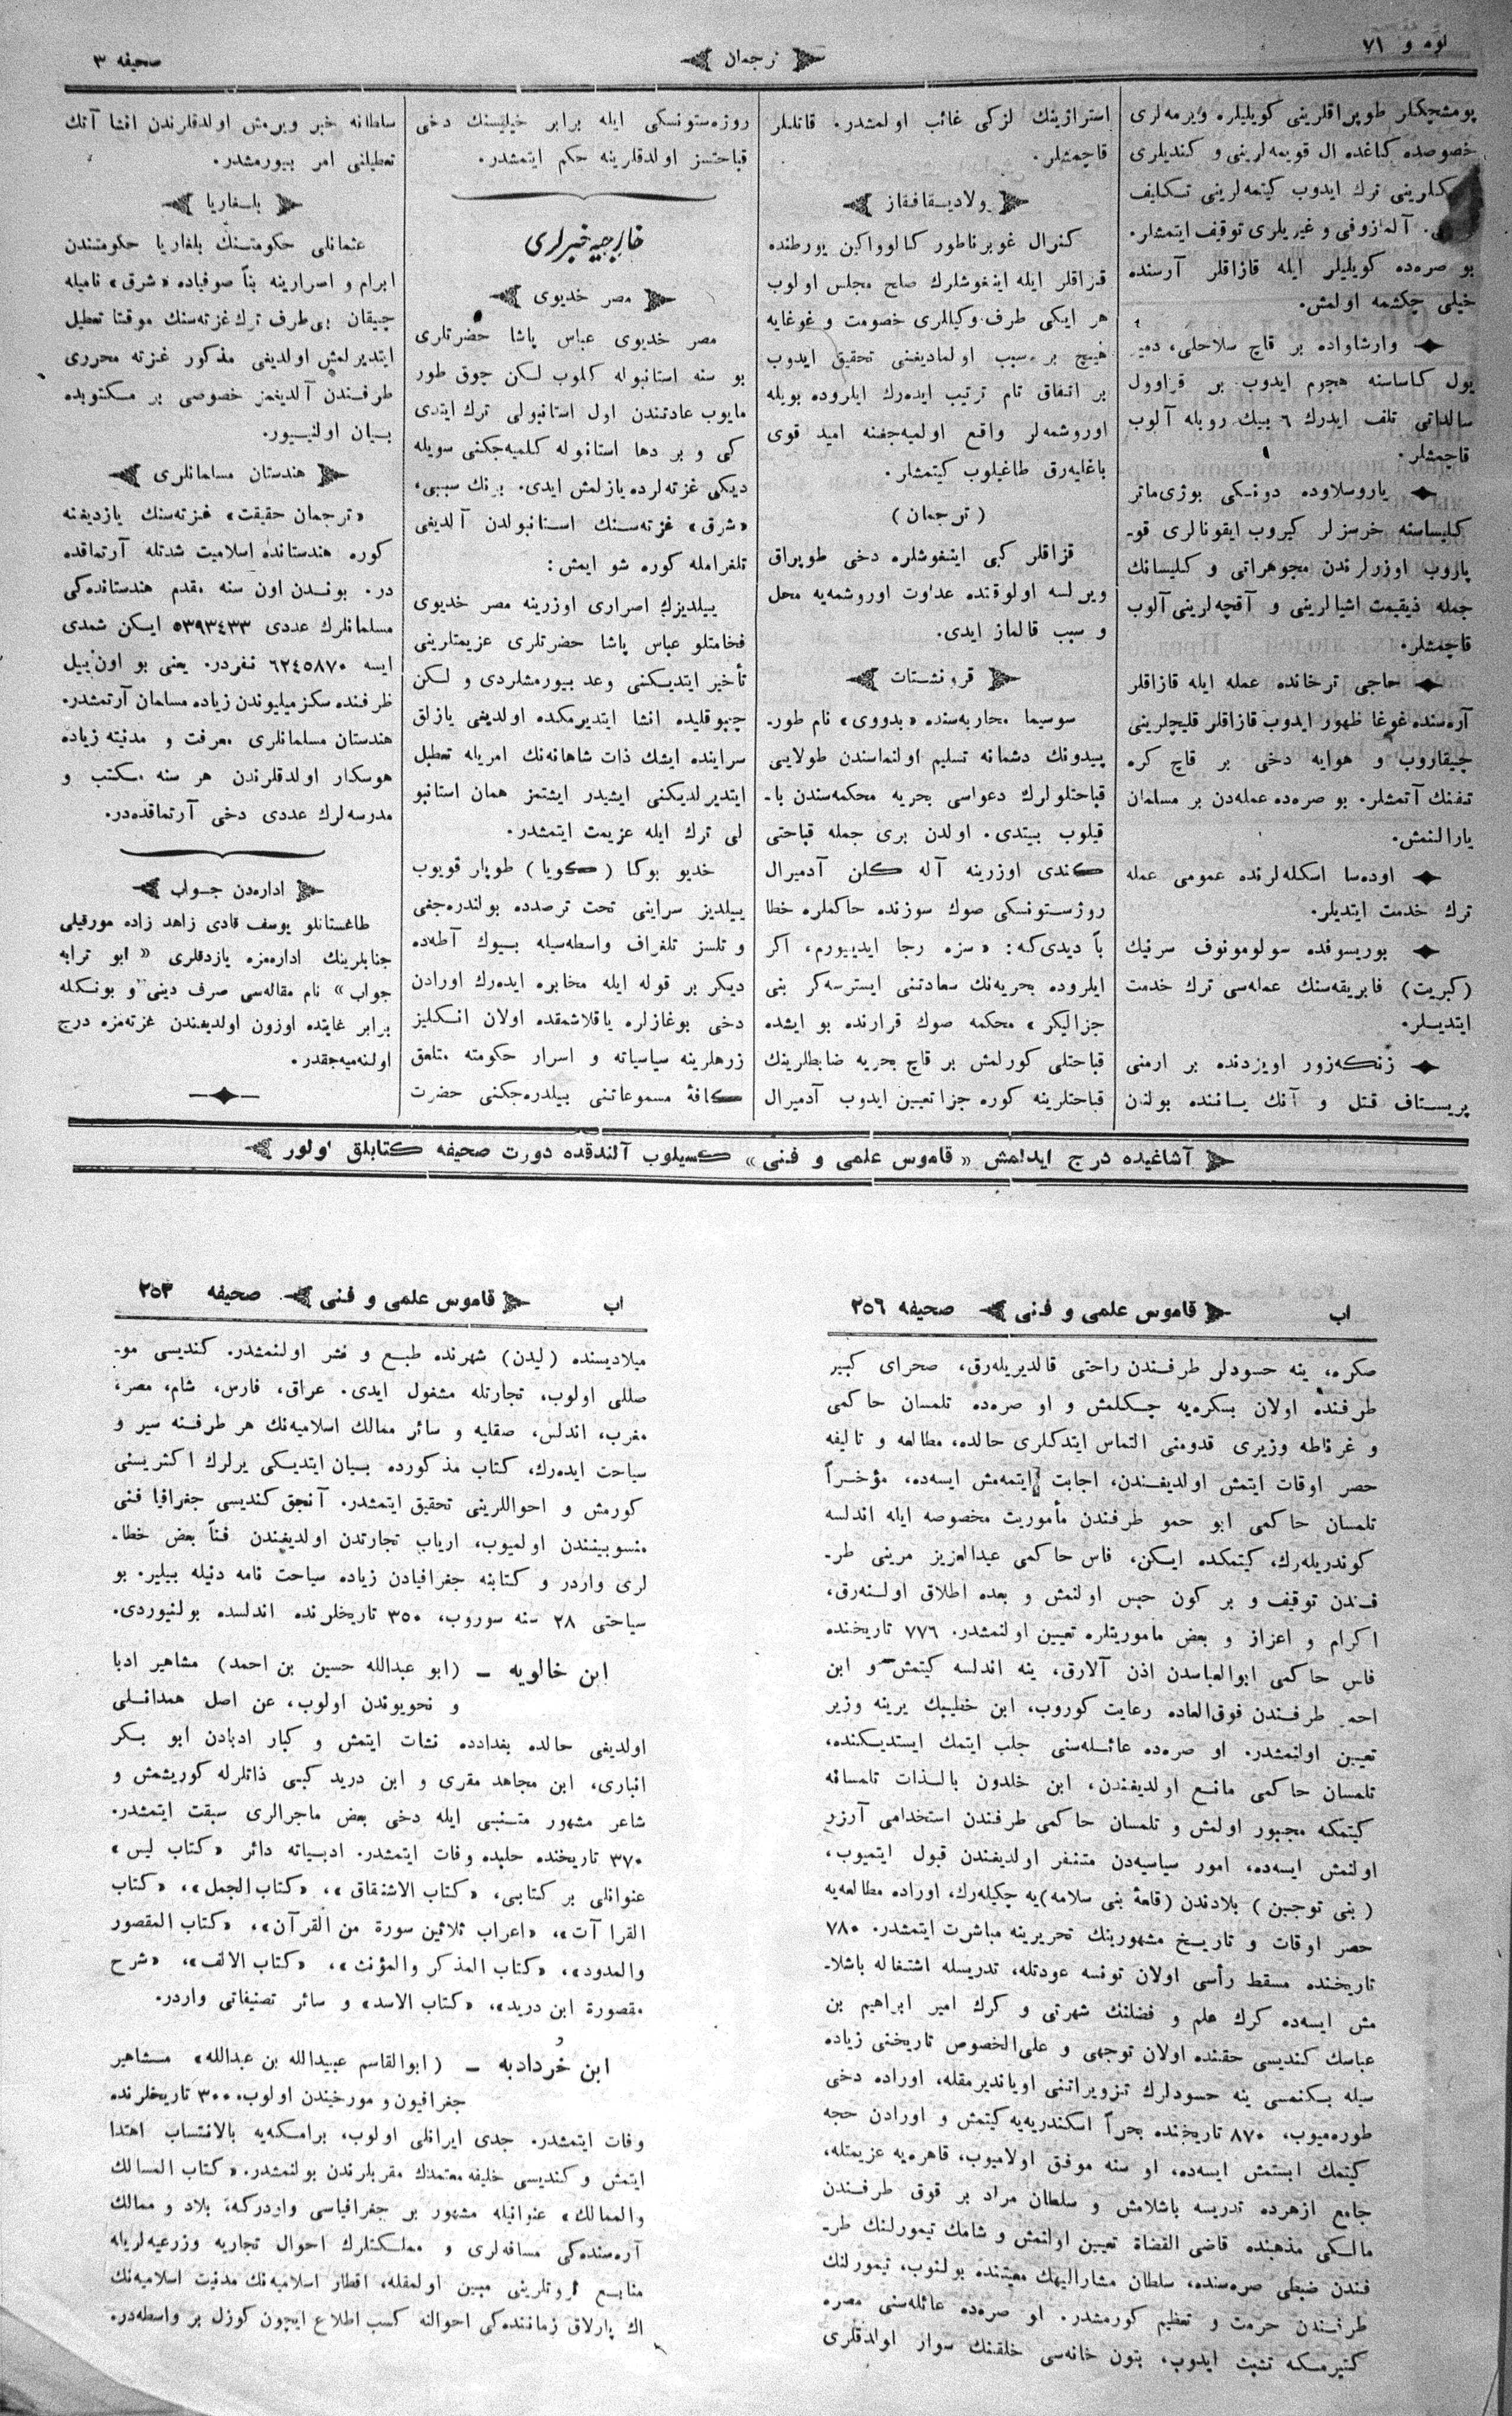 نومرو ٧١
ترجمان
صحیفه ٣
پومشچكلر طوپراقلرینی كویلیلره ویرمه‌لری
خصوصده كاغده ال قویمه‌لرینی و كندیلری
كلرینی ترك ایدوب كیتمه‌لرینی تكلیف
آلمازوفی و غیریلری توقیف ایتمشلر.
بو صره‌ده كویلیلر ایله قازاقلر آرسنده
خیلی چكشمه اولمش.
وارشاواده بر قاچ سلاحلی، دمیر
یول كاساسنه هجوم ایدوب بر قراوول
سالداتی تلف ایدرك ٦ بیك روبله آلوب
قاچمشلر.
یاروسلاوده دونسكی بوژی‌ماتر
كلیساسنه خرسزلر كیروب ایقونالری قو-
پاروب اوزرلرندن مجوهراتی و كلیسانك
جمله ذیقیمت اشیالرینی و آقچه‌لرینی آلوب
قاچمشلر.
حاجی ترخانده عمله ایله قازاقلر
آره‌سنده غوغا ظهور ایدوب قازاقلر قلیچلرینی
چیقاروب و هوایه دخی بر قاچ كره
تفنك آتمشلر. بو صره‌ده عمله‌دن بر مسلمان
یارالنمش.
اوده‌سا اسكله‌لرنده عمومی عمله
ترك خدمت ایتدیلر.
بوریسوفده سولومونوف سرنیك
(كبریت) فابریقه‌سنك عمله‌سی ترك خدمت
ایتدیلر.
زنكه‌زور اویزدنده بر ارمنی
پریستاف قتل و آنك یاننده بولنان
استراژینك لزكی غائب اولمشدر. قاتللر
قاچمشلر.
ولادیقافقاز
كنرال غوبرناطور كنالوواكین یورطنده
قزاقلر ایله اینغوشلرك صلح مجلس اولوب
هر ایكی طرف وكیللری خصومت و غوغایه
هیچ بر سبب اولمادیغنی تحقیق ایدوب
بر اتفاق تام ترتیب ایده‌رك ایلروده بویله
اوروشمه‌لر واقع اولمیه‌جغنه امید قوی
باغلیه‌رق طاغیلوب كیتمشلر.
(ترجمان)
قزاقلر كبی اینغوشلره دخی طوپراق
ویرلسه اولوقتده عداوت اوروشمه‌یه محل
و سبب قالماز ایدی.
قرونشتات
سوسیما محاربه‌سنده «بدووی» نام طور-
پیدونك دشمانه تسلیم اولنماسندن طولایی
قباحتلولرك دعواسی بحریه محكمه‌سندن با-
قیلوب بیتدی. اولدن بری جمله قباحتی
كندی اوزرینه آله كلن آدمیرال
روژستونسكی صوك سوزنده حاكملره خطا
باً دیدی‌كه: «سزه رجا ایدییورم، اكر
ایلروده بحریه‌نك سعادتنی ایسترسه‌كز بنی
جزالیكز» محكمه صوك قرارنده بو ایشده
قباحتلی كورلمش بر قاچ بحریه ضابطلرینك
قباحتلرینه كوره جزا تعیین ایدوب آدمیرال
روژه‌ستونسكی ایله برابر خیلیسنك دخی
قباحتسز اولدقلرینه حكم ایتمشدر.
خارجیه خبرلری
مصر خدیوی
مصر خدیوی عباس پاشا حضرتلری
بو سنه استانبوله كلوب لكن چوق طور
مایوب عادتندن اول استانبولی ترك ایتدی
كی و بر دها استانبوله كلمیه‌جكنی سویله
دیكی غزته‌لرده یازلمش ایدی. بونك سببی،
«شرق» غزته‌سنك استانبولدن آلدیغی
تلغرامله كوره شو ایمش:
ییلدیزك اصراری اوزرینه مصر خدیوی
فخامتلو عباس پاشا حضرتلری عزیمتلرینی
تأخیر ایتدیكنی وعد بیورمشلردی و لكن
چبوقلیده انشا ایتدیرمكده اولدیغی یازلق
سراینده ایشك ذات شاهانه‌نك امریله تعطیل
ایتدیرلدیكنی ایشیدر ایشتمز همان استانبو
لی ترك ایله عزیمت ایتمشدر.
خدیو بوكا (كویا) طوپلر قویوب
ییلدیز سراینی تحت ترصدده بولندره‌جغی
و تلسز تلغراف واسطه‌سیله بیوك آطه‌ده
دیكر بر قوله ایله مخابره ایده‌رك اورادن
دخی بوغازلره یاقلاشمقده اولان انكلیز
زرهلرینه سیاسیاته و اسرار حكومته متعلق
كافهٔ مسموعاتنی بیلدره‌جكنی حضرت
سلطانه خبر ویرمش اولدقلرندن انشا آتك
تعطیلنی امر بیورمشدر.
بلغاریا
عثمانلی حكومتنك بلغاریا حكومتندن
ابرام و اصرارینه بناً صوفیاده «شرق» نامیله
چیقان بی‌طرف ترك غزته‌سنك موقتا تعطیل
ایتدیرلمش اولدیغی مذكور غزته محرری
طرفندن آلدیغمز خصوصی بر مكتوبده
بیان اولنیور.
هندستان مسلمانلری
«ترجمان حقیقت» غزته‌سنك یازدیغنه
كوره هندستانده اسلامیت شدتله آرتماقده
در. بوندن اون سنه مقدم هندستانده‌كی
مسلمانلرك عددی ٥٣٩٣٤٣٣ ایسكن شمدی
ایسه ٦٢٤٥٨٧٠ نفردر. یعنی بو اون ییل
ظرفنده سكز میلیوندن زیاده مسلمان آرتمشدر.
هندستان مسلمانلری معرفت و مدنیته زیاده
هوسكار اولدقلرندن هر سنه مكتب و
مدرسه‌لرك عددی دخی آرتماقده‌در.
اداره‌دن جواب
طاغستانلو یوسف قادی زاهد زاده مورقیلی
جنابلرینك اداره‌مزه یازدقلری «ابو ترابه
جواب» نام مقاله‌سی صرف دینی و بونكله
برابر غایتده اوزون اولدیغندن غزته‌مزه درج
اولنه‌میه‌جقدر.
آشاغیده درج ایدلمش «قاموس علمی و فنی» كسیلوب آلندقده دورت صحیفه كتابلق اولور
اب قاموس علمی و فنی صحیفه ٢٥٦
صكره، ینه حسودلر طرفندن راحتی قالدیریله‌رق، صحرای كبیر
طرفنده اولان بسكره‌یه چكلمش و او صره‌ده تلمسان حاكمی
و غرناطه وزیری قدومنی التماس ایتدكلری حالده، مطالعه و تالیفه
حصر اوقات ایتمش اولدیغندن، اجابت ایتمه‌مش ایسه‌ده، مؤخراً
تلمسان حاكمی ابو حمو طرفندن مأموریت مخصوصه ایله اندلسه
كوندریله‌رك، كیتمكده ایسكن، فاس حاكمی عبدالعزیز مرینی طر-
فندن توقیف و بر كون حبس اولنمش و بعده اطلاق اولنه‌رق،
اكرام و اعزاز و بعض ماموریتلره تعیین اولنمشدر. ٧٧٦ تاریخنده
فاس حاكمی ابوالعباسدن اذن آلارق، ینه اندلسه كیتمش و ابن
احمر طرفندن فوق‌العاده رعایت كوروب، ابن خطیبك یرینه وزیر
تعیین اولنمشدر. او صره‌ده عائله‌سنی جلب ایتمك ایستدیكنده،
تلمسان حاكمی مانع اولدیغندن، ابن خلدون بالذات تلمسانه
كیتمكه مجبور اولمش و تلمسان حاكمی طرفندن استخدامی آرزو
اولنمش ایسه‌ده، امور سیاسیه‌دن متنفر اولدیغندن قبول ایتمیوب،
(بنی توجین) بلادندن (قلعهٔ بنی سلامه)یه چكیله‌رك، اوراده مطالعه‌یه
حصر اوقات و تاریخ مشهورینك تحریرینه مباشرت ایتمشدر. ٧٨٠
تاریخنده مسقط رأسی اولان تونسه عودتله، تدریسله اشتغاله باشلا-
مش ایسه‌ده كرك علم و فضلنك شهرتی و كرك امیر ابراهیم بن
عباسك كندیسی حقنده اولان توجهی و علی‌الخصوص تاریخنی زیاده
سیله بكنمسی ینه حسودلرك تزویراتنی اویاندیرمقله، اوراده دخی
طوره‌میوب، ٨٧٠ تاریخنده بحراً اسكندریه‌یه كیتمش و اورادن حجه
كیتمك ایستمش ایسه‌ده، او سنه موفق اولامیوب، قاهره‌یه عزیمتله،
جامع ازهرده تدریسه باشلامش و سلطان مراد بر قوق طرفندن
مالكی مذهبنده قاضی القضاة تعیین اولنمش و شامك تیمورلنك طر-
فندن ضبطی صره‌سنده، سلطان مشارالیهك معیتنده بولنوب، تیمورلنك
طرفندن حرمت و تعظیم كورمشدر. او صره‌ده عائله‌سنی مصره
كتیرمكه تشبث ایدوب، بتون خانه‌سی خلقنك سوار اولدقلری
اب قاموس علمی و فنی صحیفه ٢٥٣
میلادیسنده (لیدن) شهرنده طبع و نشر اولنمشدر. كندیسی مو-
صللی اولوب، تجارتله مشغول ایدی. عراق، فارس، شام، مصر،
مغرب، اندلس، صقلیه و سائر ممالك اسلامیه‌نك هر طرفنه سیر و
سیاحت ایده‌رك، كتاب مذكورده بیان ایتدیكی یرلرك اكثریسنی
كورمش و احواللرینی تحقیق ایتمشدر. آنجق كندیسی جغرافیا فنی
منسوبیننندن اولمیوب، ارباب تجارتدن اولدیغندن فناً بعض خطا-
لری واردر و كتابنه جغرافیادن زیاده سیاحت نامه دنیله بیلیر. بو
سیاحتی ٢٨ سنه سوروب، ٣٥٠ تاریخلرنده اندلسده بولنیوردی.
ابن خالویه – (ابو عبدالله حسین بن احمد) مشاهیر ادبا
و نحویوندن اولوب، عن اصل همدانلی
اولدیغی حالده بغدادده نشات ایتمش و كبار ادبادن ابو بكر
انباری، ابن مجاهد مقری و ابن درید كبی ذاتلرله كوریشمش و
شاعر مشهور متنبی ایله دخی بعض ماجرالری سبقت ایتمشدر.
٣٧٠ تاریخنده حلبده وفات ایتمشدر. ادبیاته دائر «كتاب لیس»
عنوانلی بر كتابی، «كتاب الاشتقاق»، «كتاب الجمل»، «كتاب
القرا آت»، «اعراب ثلاثین سورة من القرآن»، «كتاب المقصور
والمدود»، «كتاب المذكر والمؤنث»، «كتاب الالف»، «شرح
مقصورة ابن درید»، «كتاب الاسد» و سائر تصنیفاتی واردر.
ابن خُردادبه – (ابوالقاسم عبیدالله بن عبدالله» مشاهیر
جغرافیون و مورخیندن اولوب، ٣٠٠ تاریخلرنده
وفات ایتمشدر. جدی ایرانلی اولوب، برامكه‌یه بالانتساب اهتدا
ایتمش و كندیسی خلیفه معتمدك مقربلرندن بولنمشدر. «كتاب المسالك
والممالك» عنوانیله مشهور بر جغرافیاسی واردركه، بلاد و ممالك
آره‌سنده‌كی مسافه‌لری و مملكتلرك احوال تجاریه و زرعیه‌لریله
منابع ثروتلرینی مبین اولمقله، اقطار اسلامیه‌نك مدنیت اسلامیه‌نك
اك پارلاق زماننده‌كی احوالنه كسب اطلاع ایچون كوزل بر واسطه‌در.